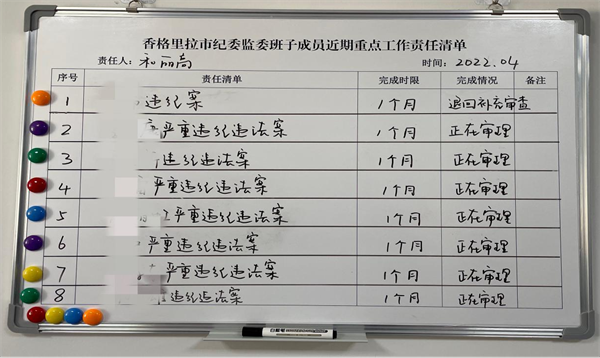 香格里拉市纪委监委班子成员近期重点工作责任清单
责任人：和丽高 时间：2022.04
序号 责任清单 完成时限 完成情况 备注
1 违纪案 1个月 退回补充审查
2 严重违纪违法案 1个月 正在审理
3 违纪违法案 1个月 正在审理
4 严重违纪违法案 1个月 正在审理
5 严重违纪违法案 1个月 正在审理
6 严重违纪违法案 1个月 正在审理
7 严重违纪违法案 1个月 正在审理
8 违纪违法案 1个月 正在审理
白板笔